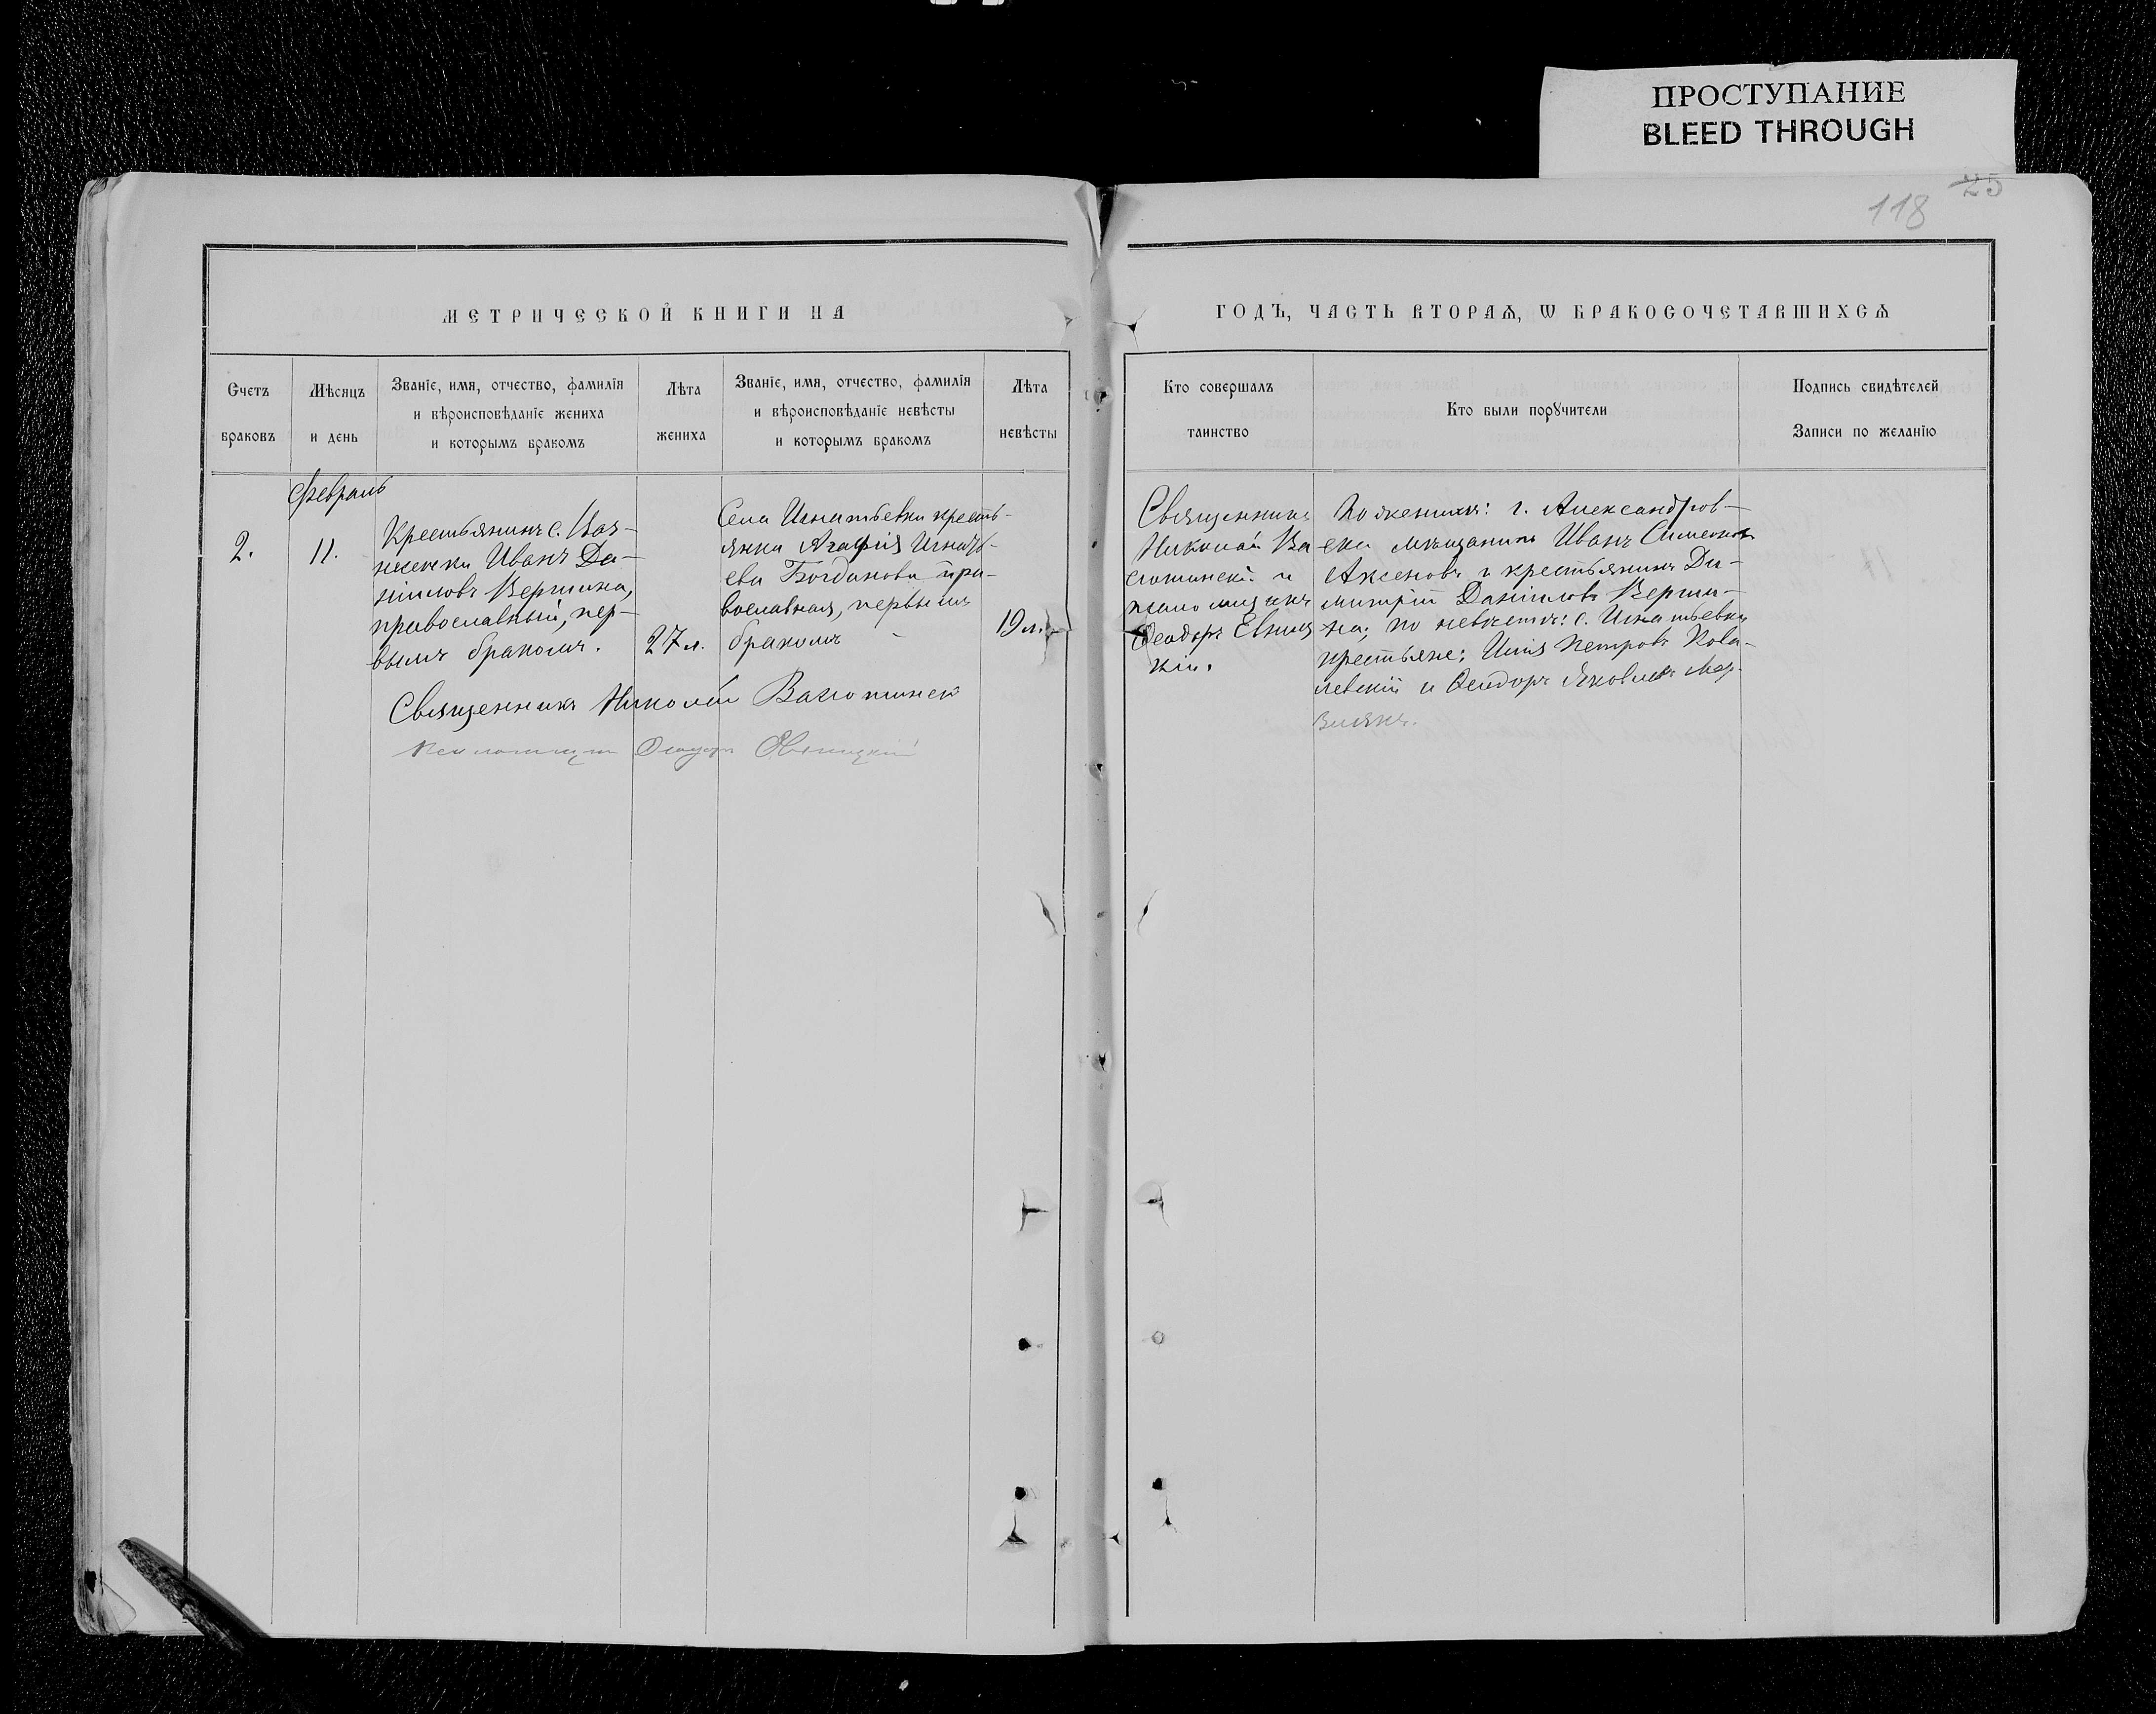 ПРОСТУПАНИЕ
BLEED THROUGH
25
118
МЕТРИЧЕСКОЙ КНИГИ НА
ГОДЪ, ЧАСТЬ ВТОРАѦ, Ѡ БРАКОСОЧЕТАВШИХСѦ
Счетъ
браковъ
Мѣсяцъ
и день
Званіе, имя, отчество, фамилія
и вѣроисповѣданіе жениха
и которымъ бракомъ
Лѣта
жениха
Званіе, имя, отчество, фамилія
и вѣроисповѣданіе невѣсты
и которымъ бракомъ
Лѣта
невѣсты
Кто совершалъ
таинство
Кто были порꙋчители
Подпись свидѣтелей
Записи по желанію
Февраль
2.
11.
Крестьянинъ с.
Иванъ Да-
ніиловъ Вертина,
православный, пер-
вымъ бракомъ.
27 л.
Села Игнатьевки кресть-
янка Агафія Игнать-
ева Богданова пра-
вославная, первымъ
бракомъ
19 л.
Священникъ
Николай Ва
и
псаломщикъ
Ѳеодоръ Евниц
кій.
По женихѣ: г. Александров-
ска мѣщанинъ Иванъ Симеоновъ
Аксеновъ и крестьянинъ Ди-
митрій Даніиловъ Верти-
на; по невѣстѣ: с. Игнатьевки
крестьяне: Илія Петровъ Кова-
левскій и Ѳеодоръ Яковлевъ
Священникъ Николай
Псаломщикъ Ѳеодоръ Евницкій